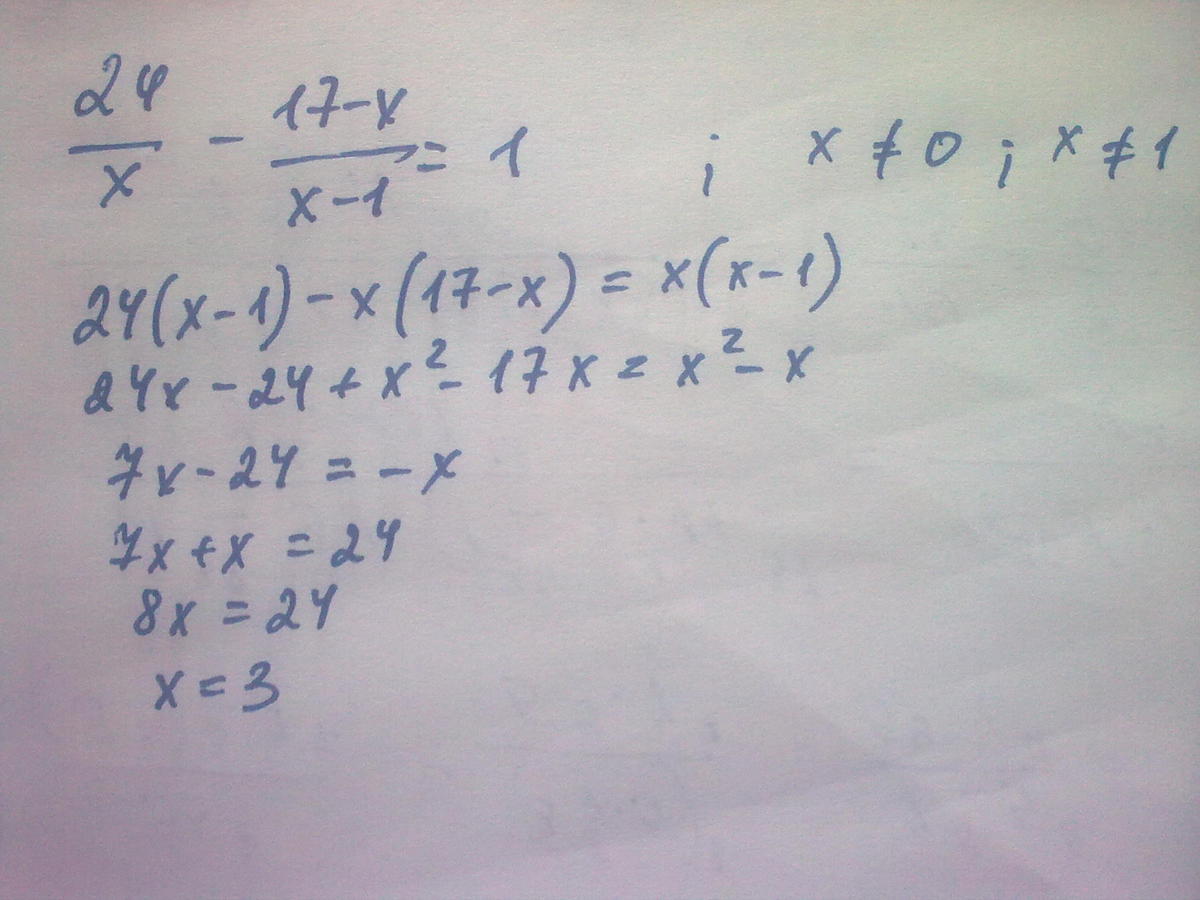 24/x - (17-x)/(x-1) = 1 ; x ≠ 0 ; x ≠ 1
24(x-1) - x(17-x) = x(x-1)
24x - 24 + x² - 17x = x² - x
7x - 24 = -x
7x + x = 24
8x = 24
x = 3